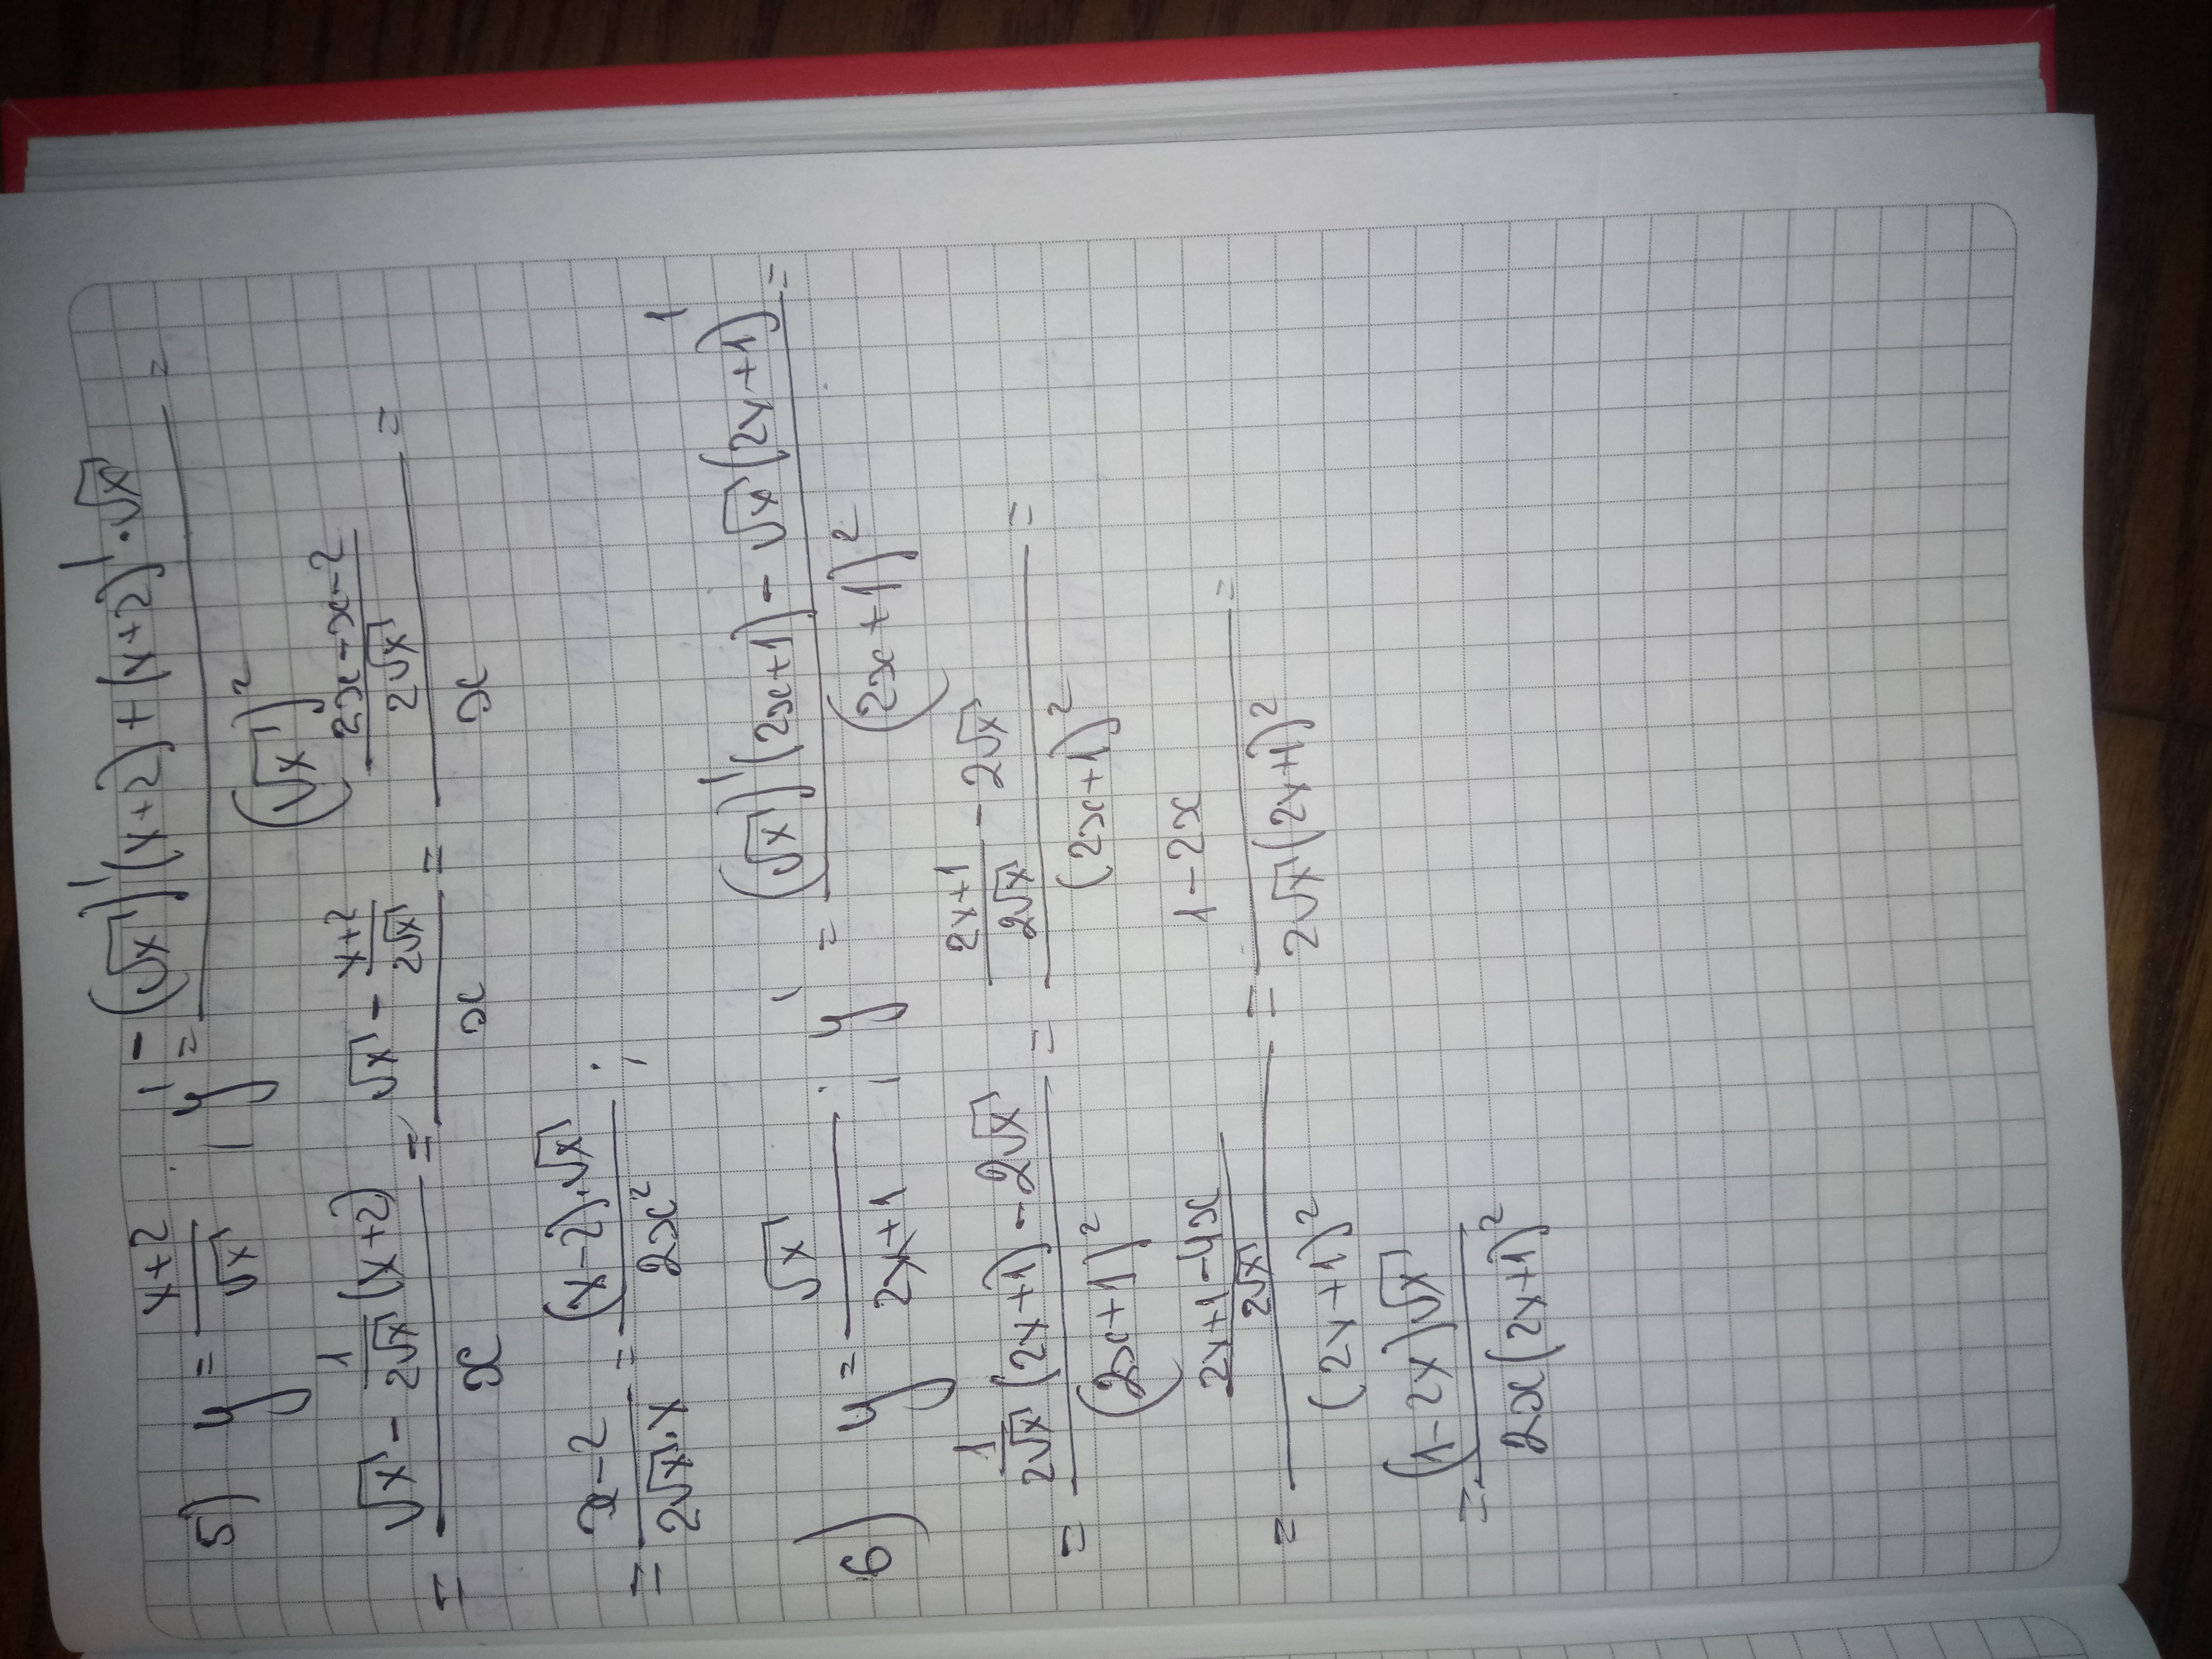 5) y = (x+2)/√x ; y' = (-(√x)'(x+2) + (x+2)'·√x)/(√x)² =
= (√x - 1/(2√x) (x+2))/x = (√x - (x+2)/(2√x))/x = ((2x-x-2)/(2√x))/x =
= (x-2)/(2√x·x) = ((x-2)·√x)/(2x²) ;
6) y = √x/(2x+1) ; y' = ((√x)'(2x+1) - √x(2x+1)')/(2x+1)² =
= (1/(2√x) (2x+1) - 2√x)/(2x+1)² = ((2x+1)/(2√x) - 2√x)/(2x+1)² =
= ((2x+1-4x)/(2√x))/(2x+1)² = (1-2x)/(2√x(2x+1)²) =
= ((1-2x)√x)/(2x(2x+1)²)